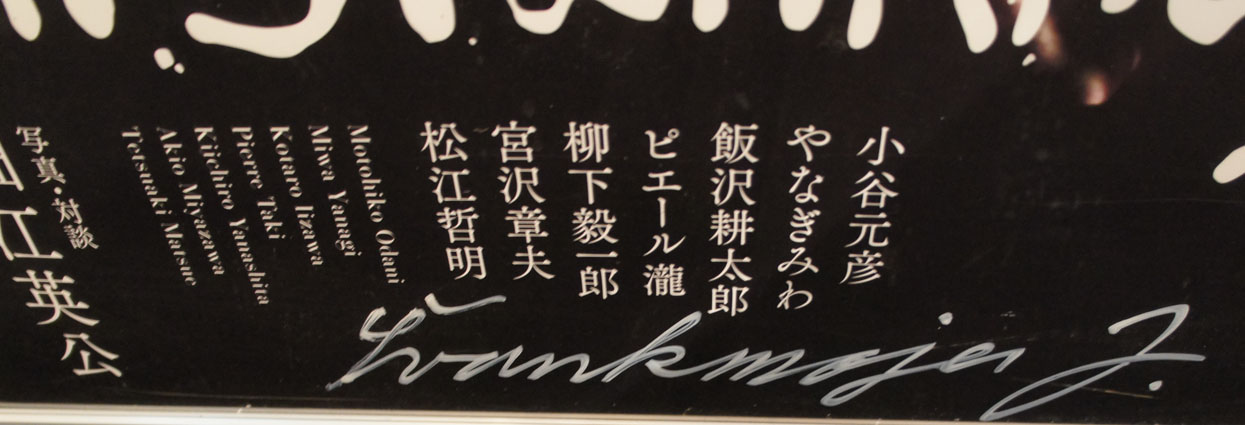 小谷元彦
やなぎみわ
飯沢耕太郎
ピエール瀧
柳下毅一郎
宮沢章夫
松江哲明
Motohiko Odani
Miwa Yanagi
Kotaro Iizawa
Pierre Taki
Kiichiro Yanashita
Akio Miyazawa
Tetsuaki Matsue
写真・対談
江英公
Švankmajer J.